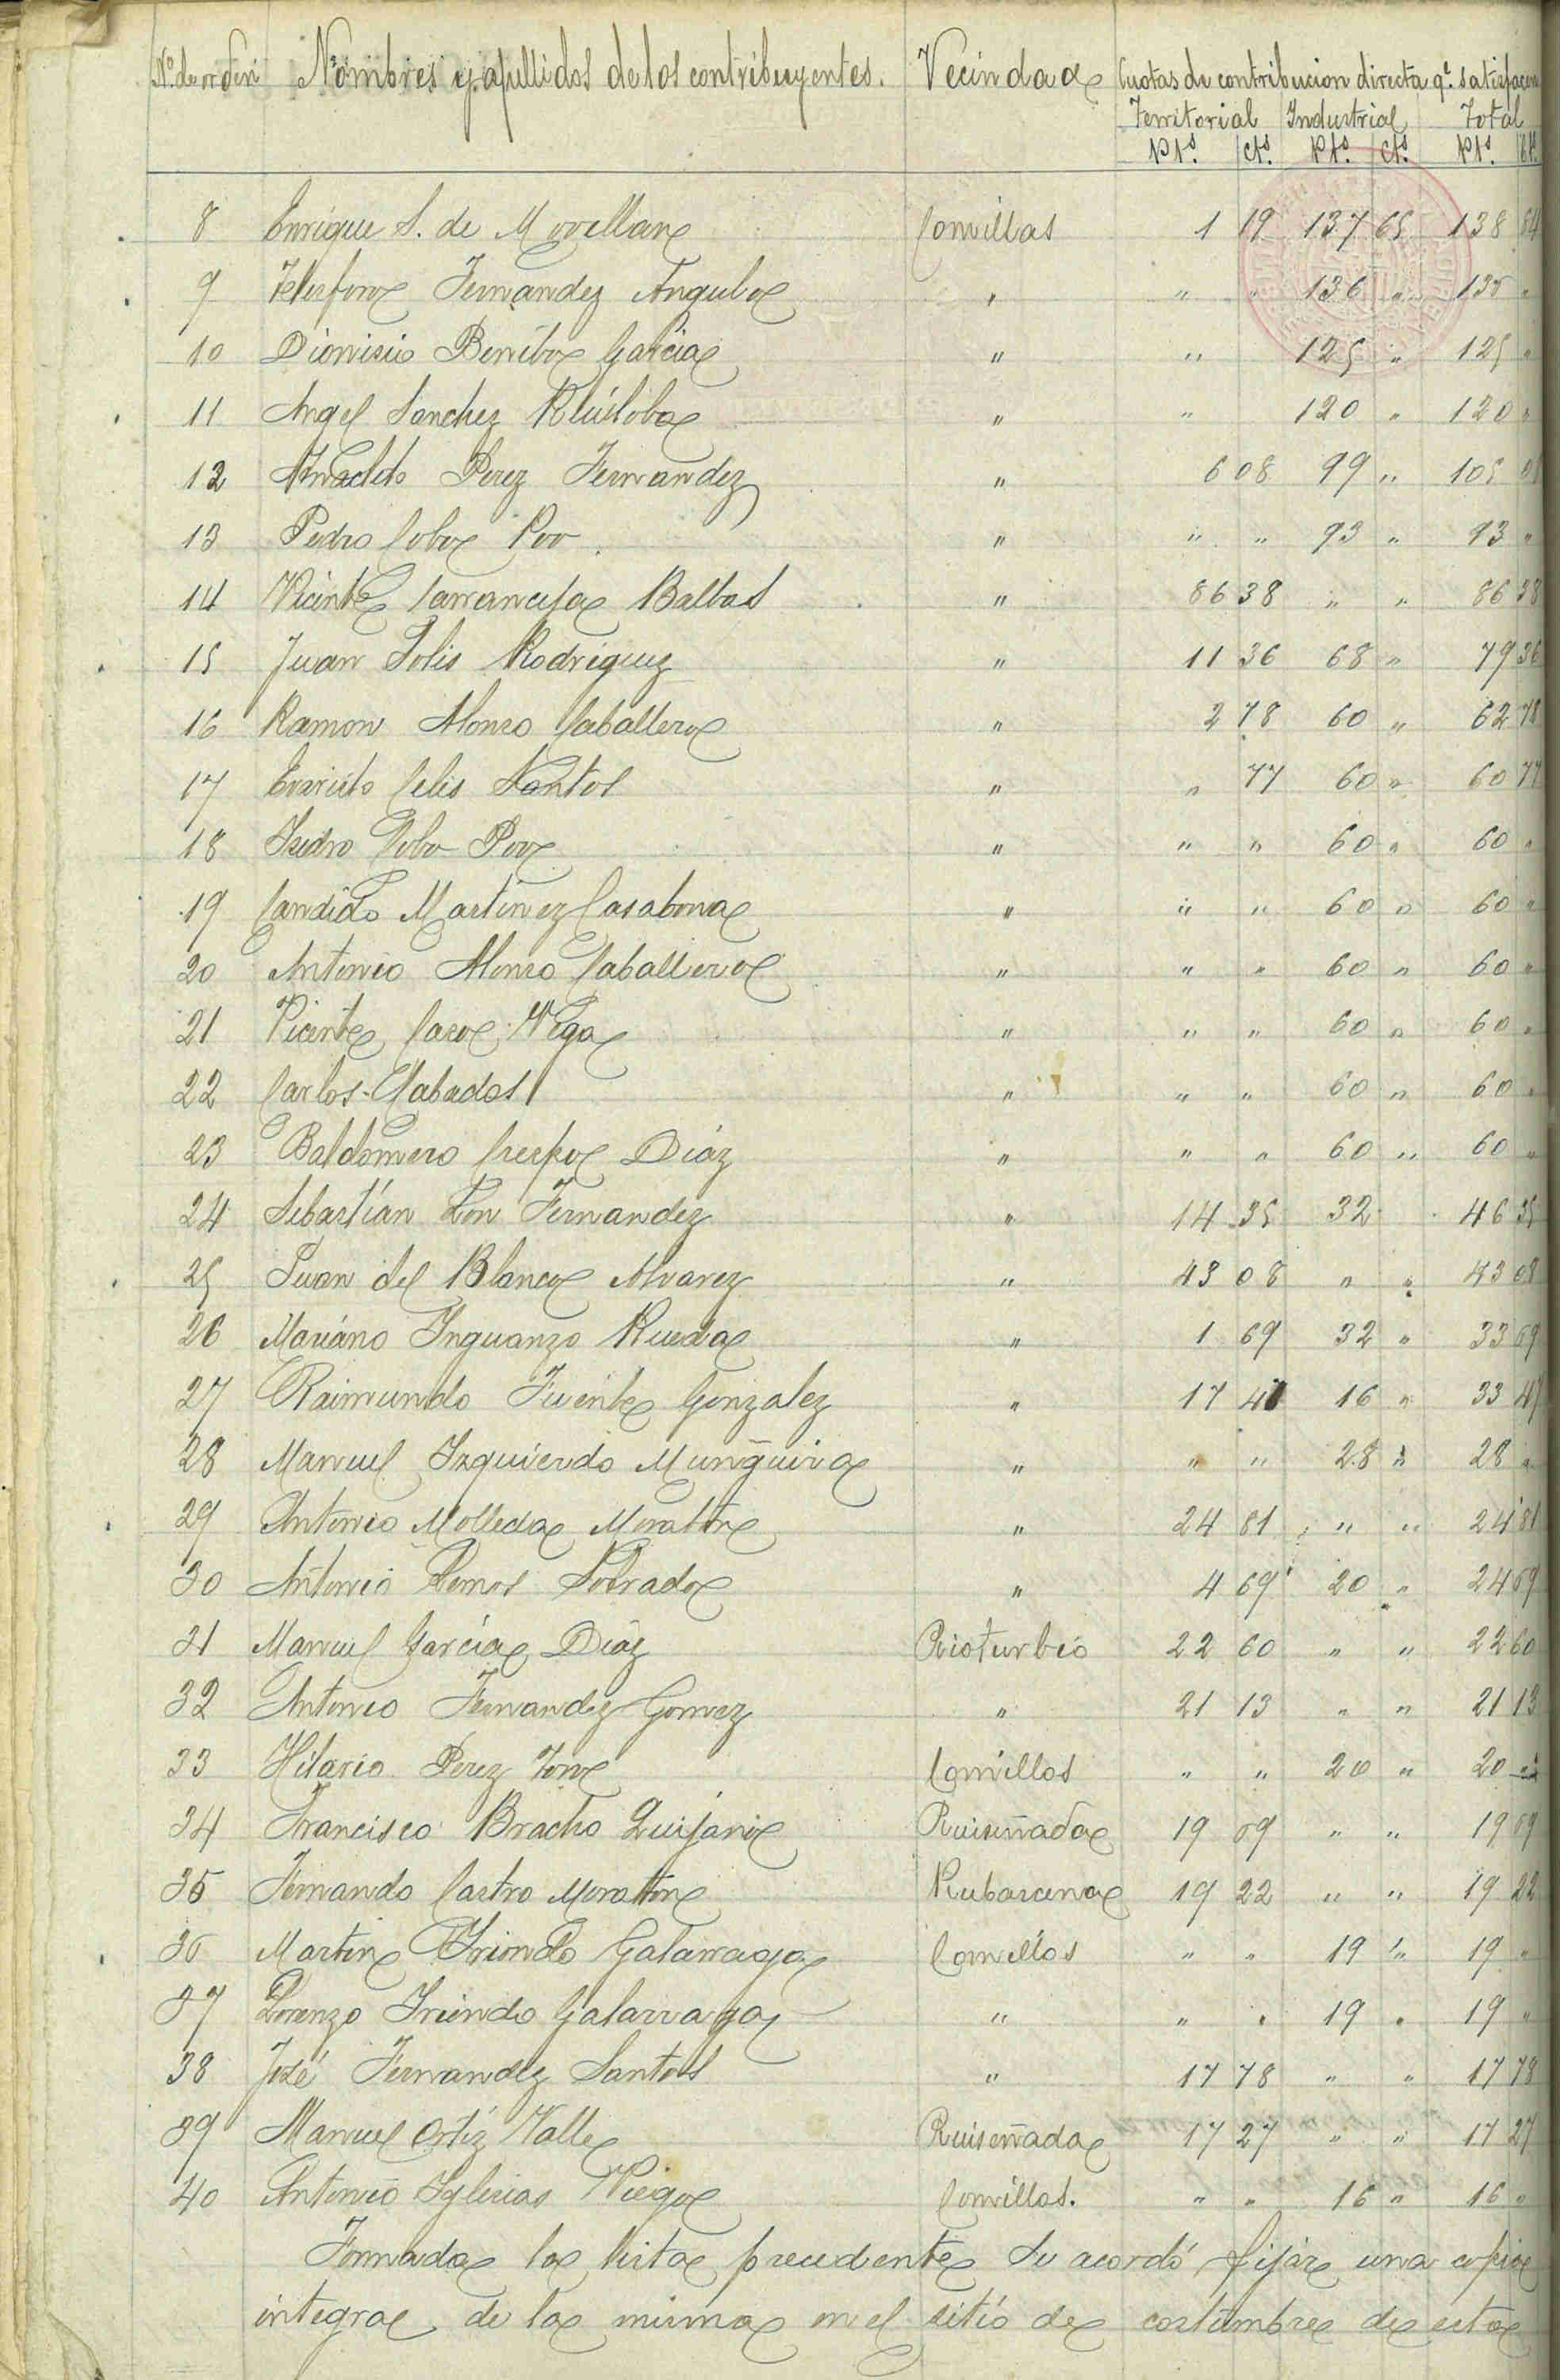 Nº de orden Nombres y apellidos de los contribuyentes. Vecindad Cuotas de contribucion directa q.e satisfacen
Territorial Industrial Total
Pts. Cts. Pts. Cts. Pts.
8 Enrique S. de Movellan Comillas 1 19 137 65 138 84
9 Telesforo Fernandez Angulo " " " 136 " 136 "
10 Dionisio Benito Garcia " " 125 " 125 "
11 Angel Sanchez Ruiloba " " 120 " 120 "
12 Anacleto Perez Fernandez " 6 08 99 " 105 08
13 Pedro Cobo Poo " " " 93 " 93 "
14 Vicente Carranceja Balbas " 86 38 " " 86 38
15 Juan Solis Rodriguez " 11 36 68 " 79 36
16 Ramon Alonso Caballero " 2 78 60 " 62 78
17 Evaristo Celis Santos " " 77 60 " 60 77
18 Isidro Cobo Poo " " " 60 " 60 "
19 Candido Martinez Casabona " " " 60 " 60 "
20 Antonio Alonso Caballero " " " 60 " 60 "
21 Vicente Caso Vega " " " 60 " 60 "
22 Carlos Sabados " " " 60 " 60 "
23 Baldomero Crespo Diáz " " " 60 " 60 "
24 Sebastían Lon Fernandez " 14 35 32 46 35
25 Juan del Blanco Alvarez " 43 08 " " 43 08
26 Mariano Inguanzo Rueda " 1 69 32 " 33 69
27 Raimundo Fuente Gonzalez " 17 47 16 " 33 47
28 Manuel Izquierdo Munguira " " " 28 " 28 "
29 Antonio Molleda Moraton " 24 81 " " 24 81
30 Antonio Ramos Sobrado " 4 69 20 " 24 69
31 Manuel García Diáz Rioturbio 22 60 " " 22 60
32 Antonio Fernandez Gomez " 21 13 " " 21 13
33 Hilario Perez Toro Comillas " " 20 " 20 "
34 Francisco Bracho Quijano Ruiseñada 19 09 " " 19 09
35 Fernando Castro Moraton Rubarcena 19 22 " " 19 22
36 Martin Iriondo Galarraga Comillas " " 19 " 19 "
37 Lorenzo Iriondo Galarraga " " " 19 " 19 "
38 José Fernandez Santos " 17 78 " " 17 78
39 Manuel Ortíz Valle Ruiseñada 17 27 " " 17 27
40 Antonio Iglesias Viego Comillas. " " 16 " 16 "
Formada la lista precedente se acordó fijar una copia
integra de la misma en el sitio de costumbre de esta